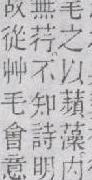 毛之以蘋藻
無芼不知詩明
從艸毛會意